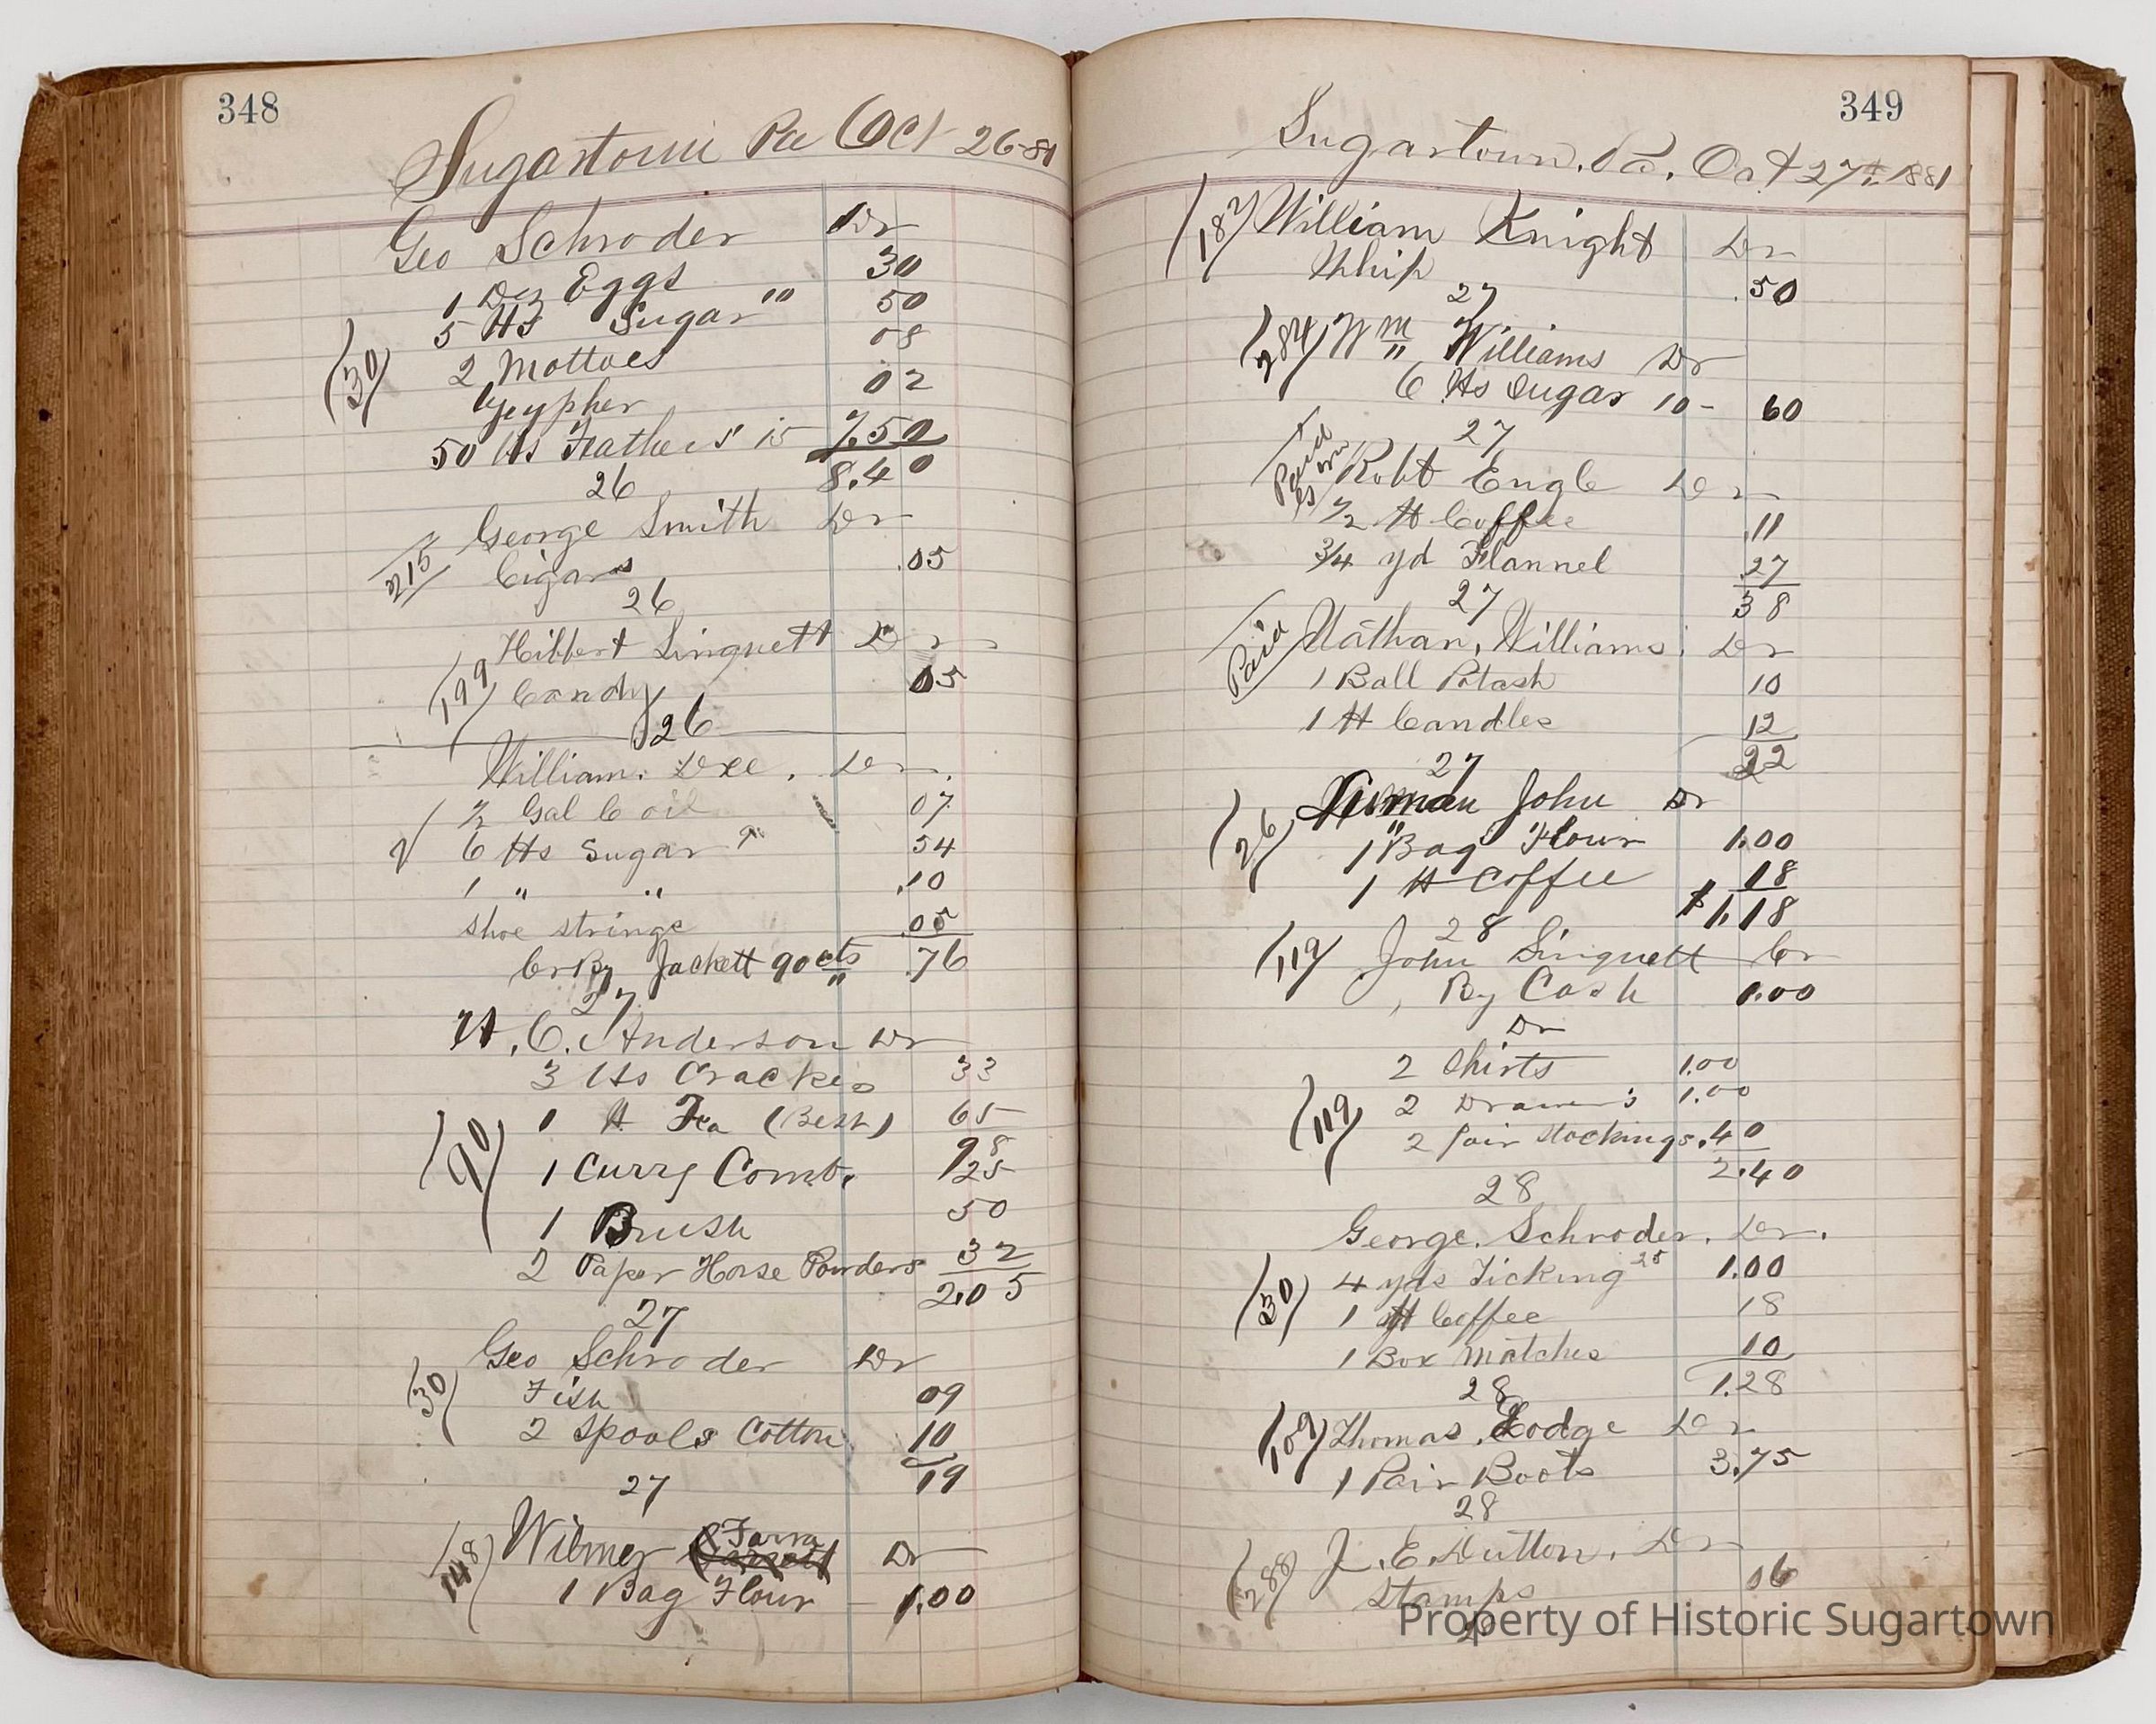 348
Sugartown Pa Oct 26-81
Geo Schroder Dr
1 Doz Eggs 30
5 lbs Sugar 10 50
(30)
2 Mottoes 08
02
50 lbs Feathers 15 7.50
8.40
26
George Smith Dr
215
Cigars .05
26
Hibbert Linquett Dr
(199)
Candy 05
26
William. Dee. Dr.
1/2 Gal C oil 07
6 lbs Sugar 9 54
1 " " .10
shoe strings .05
Cr By Jackett 90 cts .76
27
H. C. Anderson Dr
3 lbs Crackes 33
1 lb Tea (Best) 65
98
(90)
1 Curry Comb. 25
1 Brush 50
2 Paper Horse Powders 32
2.05
27
Geo Schroder Dr
(30)
Fish 09
2 Spools Cotton 10
19
27
(148)
Wilmer Farra Dr
1 Bag Flour 1.00
349
Sugartown. Pa. Oct 27th 1881
(182) William Knight Dr
Whip .50
27
(284) Wm Williams Dr
6 lbs Sugar 10 - 60
27
Paid
Robt Engle Dr
1/2 lb Coffee .11
3/4 yd Flannel .27
38
27
Paid
Nathan, Williams. Dr
1 Ball Potash 10
1 lb Candles 12
22
27
(26) John Dr
1 Bag Flour 1.00
1 lb Coffee 18
$1.18
28
(119) John Linquett Cr
By Cash 1.00
Dr
2 Shirts 1.00
(119)
2 Drawers 1.00
2 pair Stockings .40
2.40
28
George. Schroder. Dr.
4 yds Ticking 25 1.00
(30)
1 lb Coffee 18
1 Box Matches 10
1.28
28
(109) Thomas Lodge Dr
1 Pair Boots 3.75
28
(288) J. E. Dutton. Dr
Stamps 06
Property of Historic Sugartown